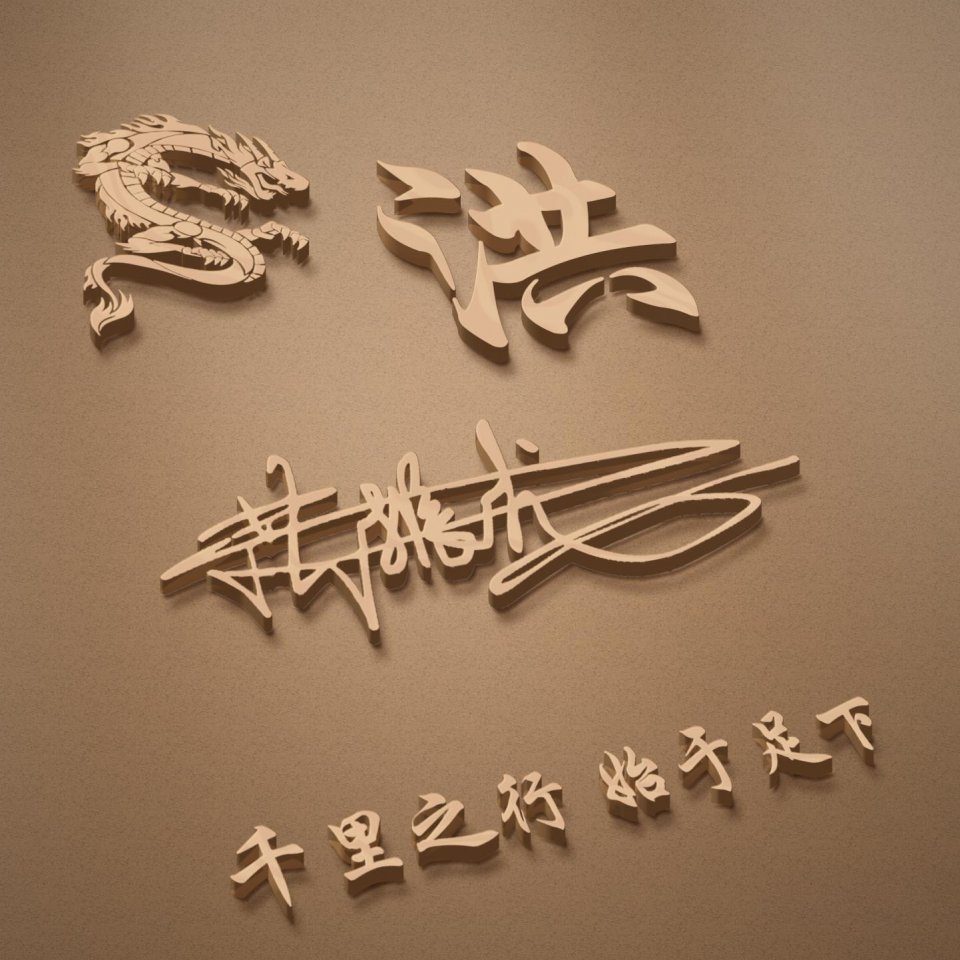 洪
千里之行 始于足下